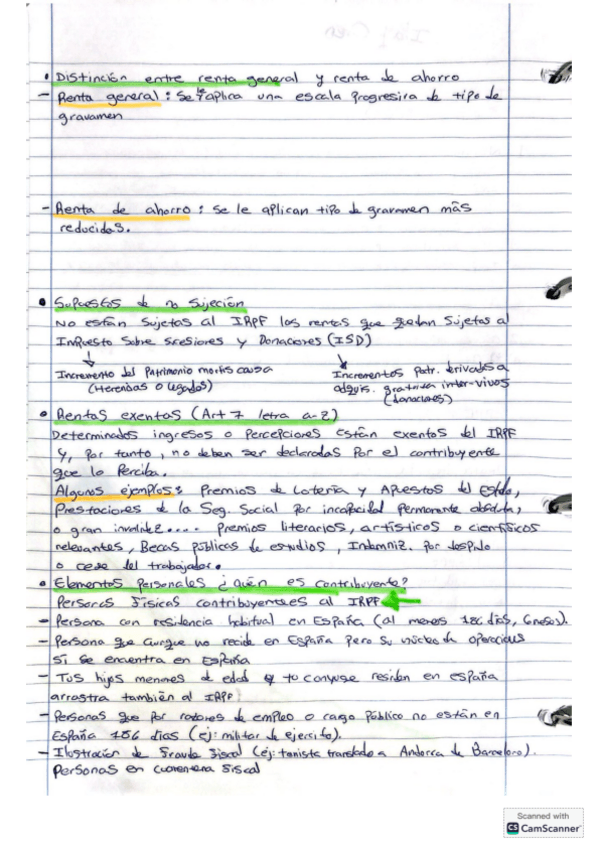 • Distinción entre renta general y renta de ahorro
- Renta general : se le aplica una escala progresiva de tipo de
gravamen
- Renta de ahorro : se le aplican tipo de gravamen más
reducidos.
• Supuestos de no sujeción
No están sujetas al IRPF las rentas que quedan sujetas al
Impuesto Sobre Scesiones y Donaciones (ISD)
↓ ↘
Incremento del Patrimonio mortis causa
(Herencias o legados)
Incrementos Patr. derivados a
adquis. gratuita inter-vivos
(donaciones)
• Rentas exentas (Art 7 letra a-z)
Determinados ingresos o percepciones están exentos del IRPF
y, por tanto, no deben ser declaradas por el contribuyente
que lo perciba.
Algunos ejemplos: Premios de Lotería y Apuestos del Estado,
Prestaciones de la Seg. Social por incapacidad permanente absoluta,
o gran invalidez.... Premios literarios, artísticos o científicos
relevantes, Becas públicas de estudios, Indemniz. por despido
o cese del trabajador.
• Elementos Personales ¿quién es contribuyente?
Personas físicas contribuyentes al IRPF ←
- Persona con residencia habitual en España (al menos 186 días, 6 meses).
- Persona que aunque no recide en España pero su núcleo de operaciones
si se encuentra en España
- Tus hijos menores de edad y tu conyuge residen en españa
arrastra también al IRPF
- Personas que por razones de empleo o cargo público no están en
España 186 días (ej: militar de ejercito).
- Ilustración de fraude fiscal (ej: tenista trasladado a Andorra de Barcelona).
Personas en cuarentena fiscal
Scanned with
CS CamScanner